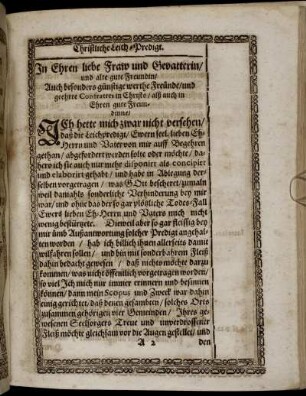 Christliche Leich-Predigt.
In Ehren liebe Fraw und Gevatterin/
und alte gute Freundin/
Auch besonders günstige werthe Freünde/und
geehrte Confratres in Christo/ alß auch in
Ehren gute Freun-
dinne/
ICh hette mich zwar nicht versehen/
daß die Leichpredigt/ Ewern seel. lieben Eh-
Herrn und Vater von mir auff Begehren
gethan/ abgefordert werden solte oder möchte/ da-
hero ich sie auch nur mehr disponirt als concipirt
und elaborirt gehabt/ und habe in Ablegung der-
selben vorgetragen/ was GOtt bescheret/zumahl
weil damahls sonderliche Verhinderung bey mir
war/ und ohne das der so gar plötzliche Todes-Fall
Ewers lieben Eh-Herrn und Vaters mich nicht
wenig bestürtzete. Dieweil aber so gar fleissig bey
mir umb Außantwortung solcher Predigt angehal-
ten worden / hab ich billich ihnen allerseits damit
wilfahren sollen/ und bin mit sonderbahrem Fleiß
dahin bedacht gewesen/ daß nichts möchte darzu
kommen/ was nicht öffentlich vorgetragen worden/
so viel Ich mich nur immer erinnern und besinnen
können/ dann mein Scopus und Zweck war dahin
einig gerichtet/ daß denen gesambten/ solches Orts
zusammen gehörigen vier Gemeinden/ Ihres ge-
wesenen Seelsorgers Treue und unverdrossener
Fleiß möchte gleichsam vor die Augen gestellet/ und
A 2 den